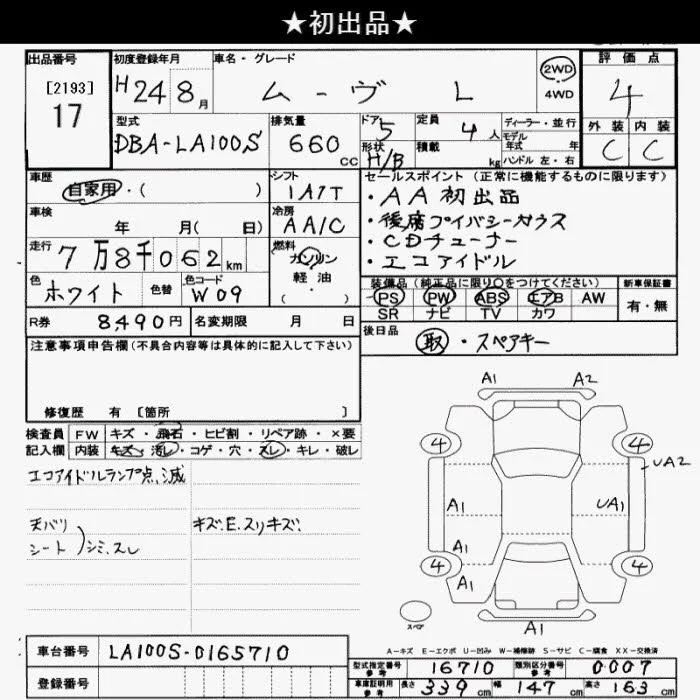 ★初出品★
出品番号
[2193]
17
初度登録年月
H24年8月
車名・グレード
ムーヴ L
2WD
4WD
評価点
4
型式
DBA-LA100S
排気量
660 CC
ドア 5
形状 H/B
定員 4人
積載 kg
ディーラー・並行
モデル
年式 年
ハンドル 左・右
外装 内装
C C
車歴
自家用・( )
シフト
IA1T
セールスポイント (正常に機能するものに限ります)
・AA初出品
・後席プライバシーガラス
・CDチューナー
・エコアイドル
車検
年 月( 日)
冷房
AA/C
走行
7万8千062km
燃料
ガソリン
軽・油
( ・ )
色
ホワイト
色替
色コード
W09
装備品 (純正品に限り○をつけてください)
PS PW ABS エアB AW
SR ナビ TV カワ
新車保証書
有・無
R券
8490円
名変期限 月 日
後日品
取・スペアキー
注意事項申告欄 (不具合内容等は具体的に記入して下さい)
修復歴 有 [箇所 ]
検査員
記入欄
FW キズ・飛石・ヒビ割・リペア跡・×要
内装 キズ・汚レ・コゲ・穴・スレ・キレ・破レ
エコアイドルランプ点滅
天バリ
シート
シミ、スレ
キズ.E.スリキズ.
A1 A2
4 4
UA2
A1 UA1
A1
4 4
A1
A1
スペア
A-キズ E-エクボ U-凹み W-補修跡 S-サビ C-腐食 XX-交換済
車台番号
LA100S-0165710
登録番号
型式指定番号
参考
16710
類別区分番号
参考
0007
車庫証明用
参考
長さ 339cm 幅 147cm 高さ 163cm